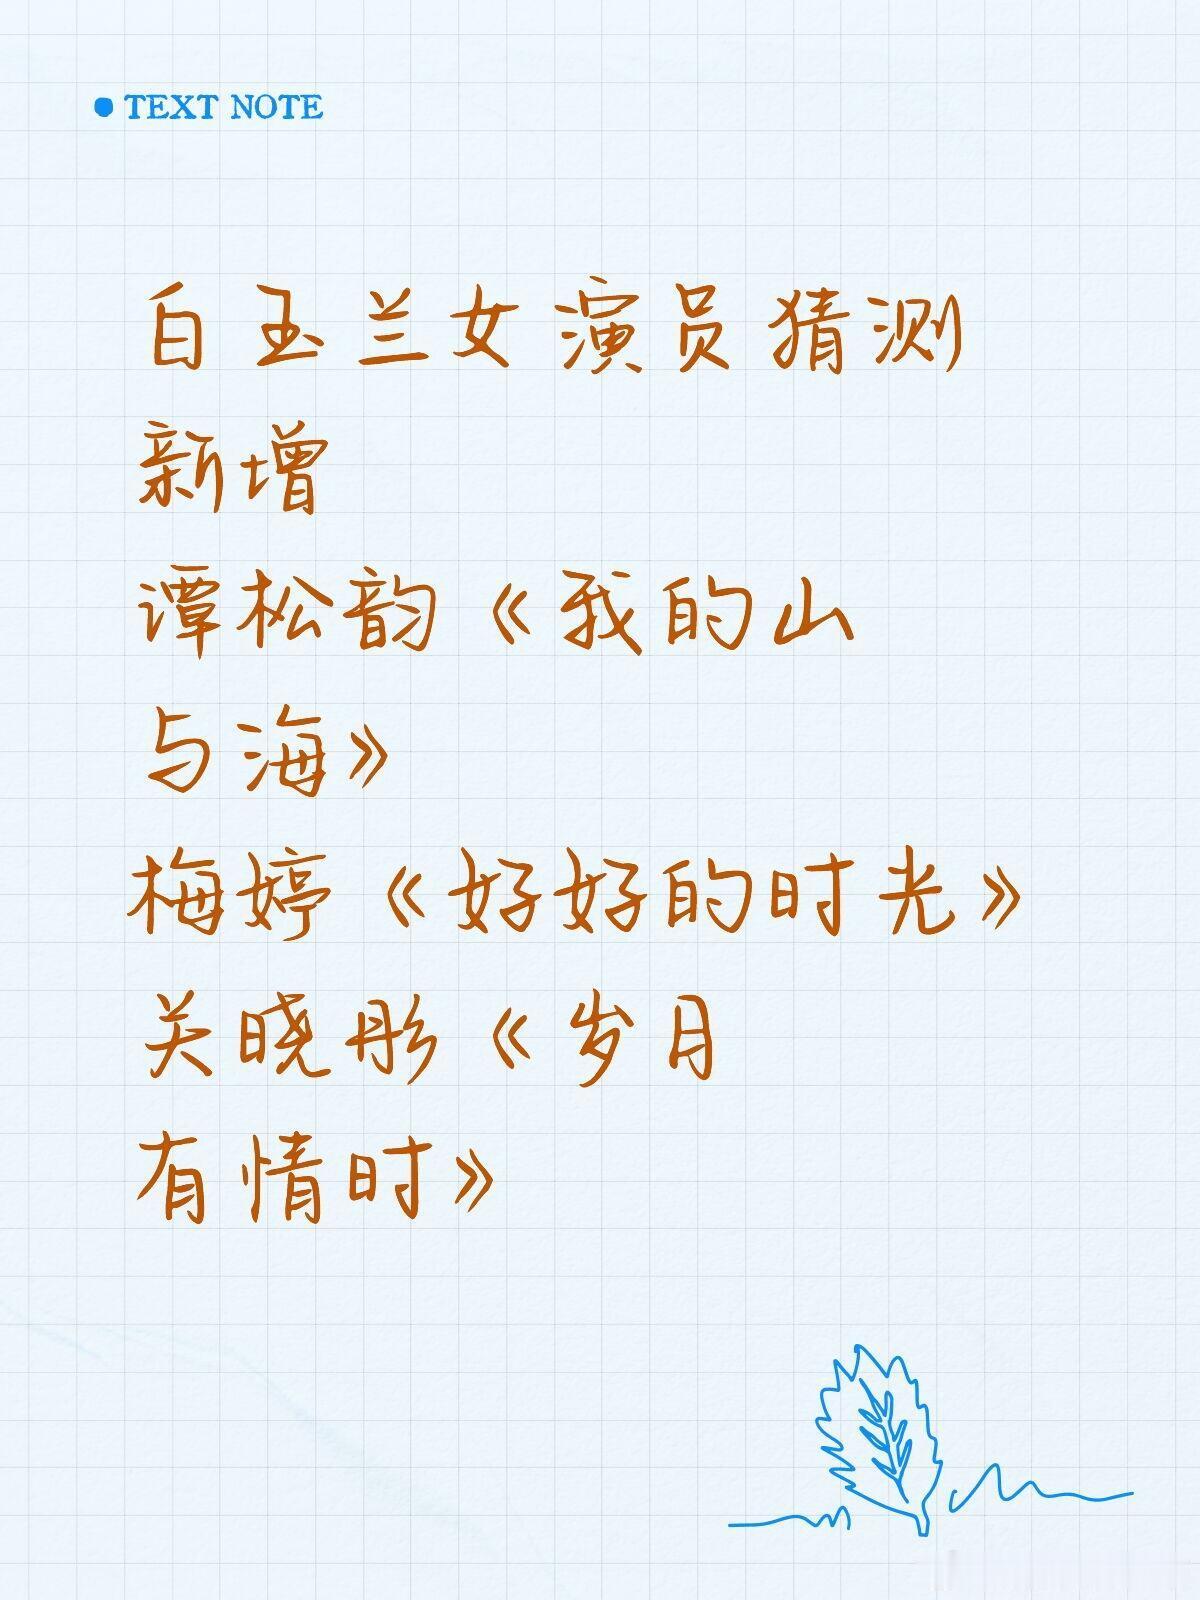 TEXT NOTE
白玉兰女演员猜测
新增
谭松韵《我的山
与海》
梅婷《好好的时光》
关晓彤《岁月
有情时》